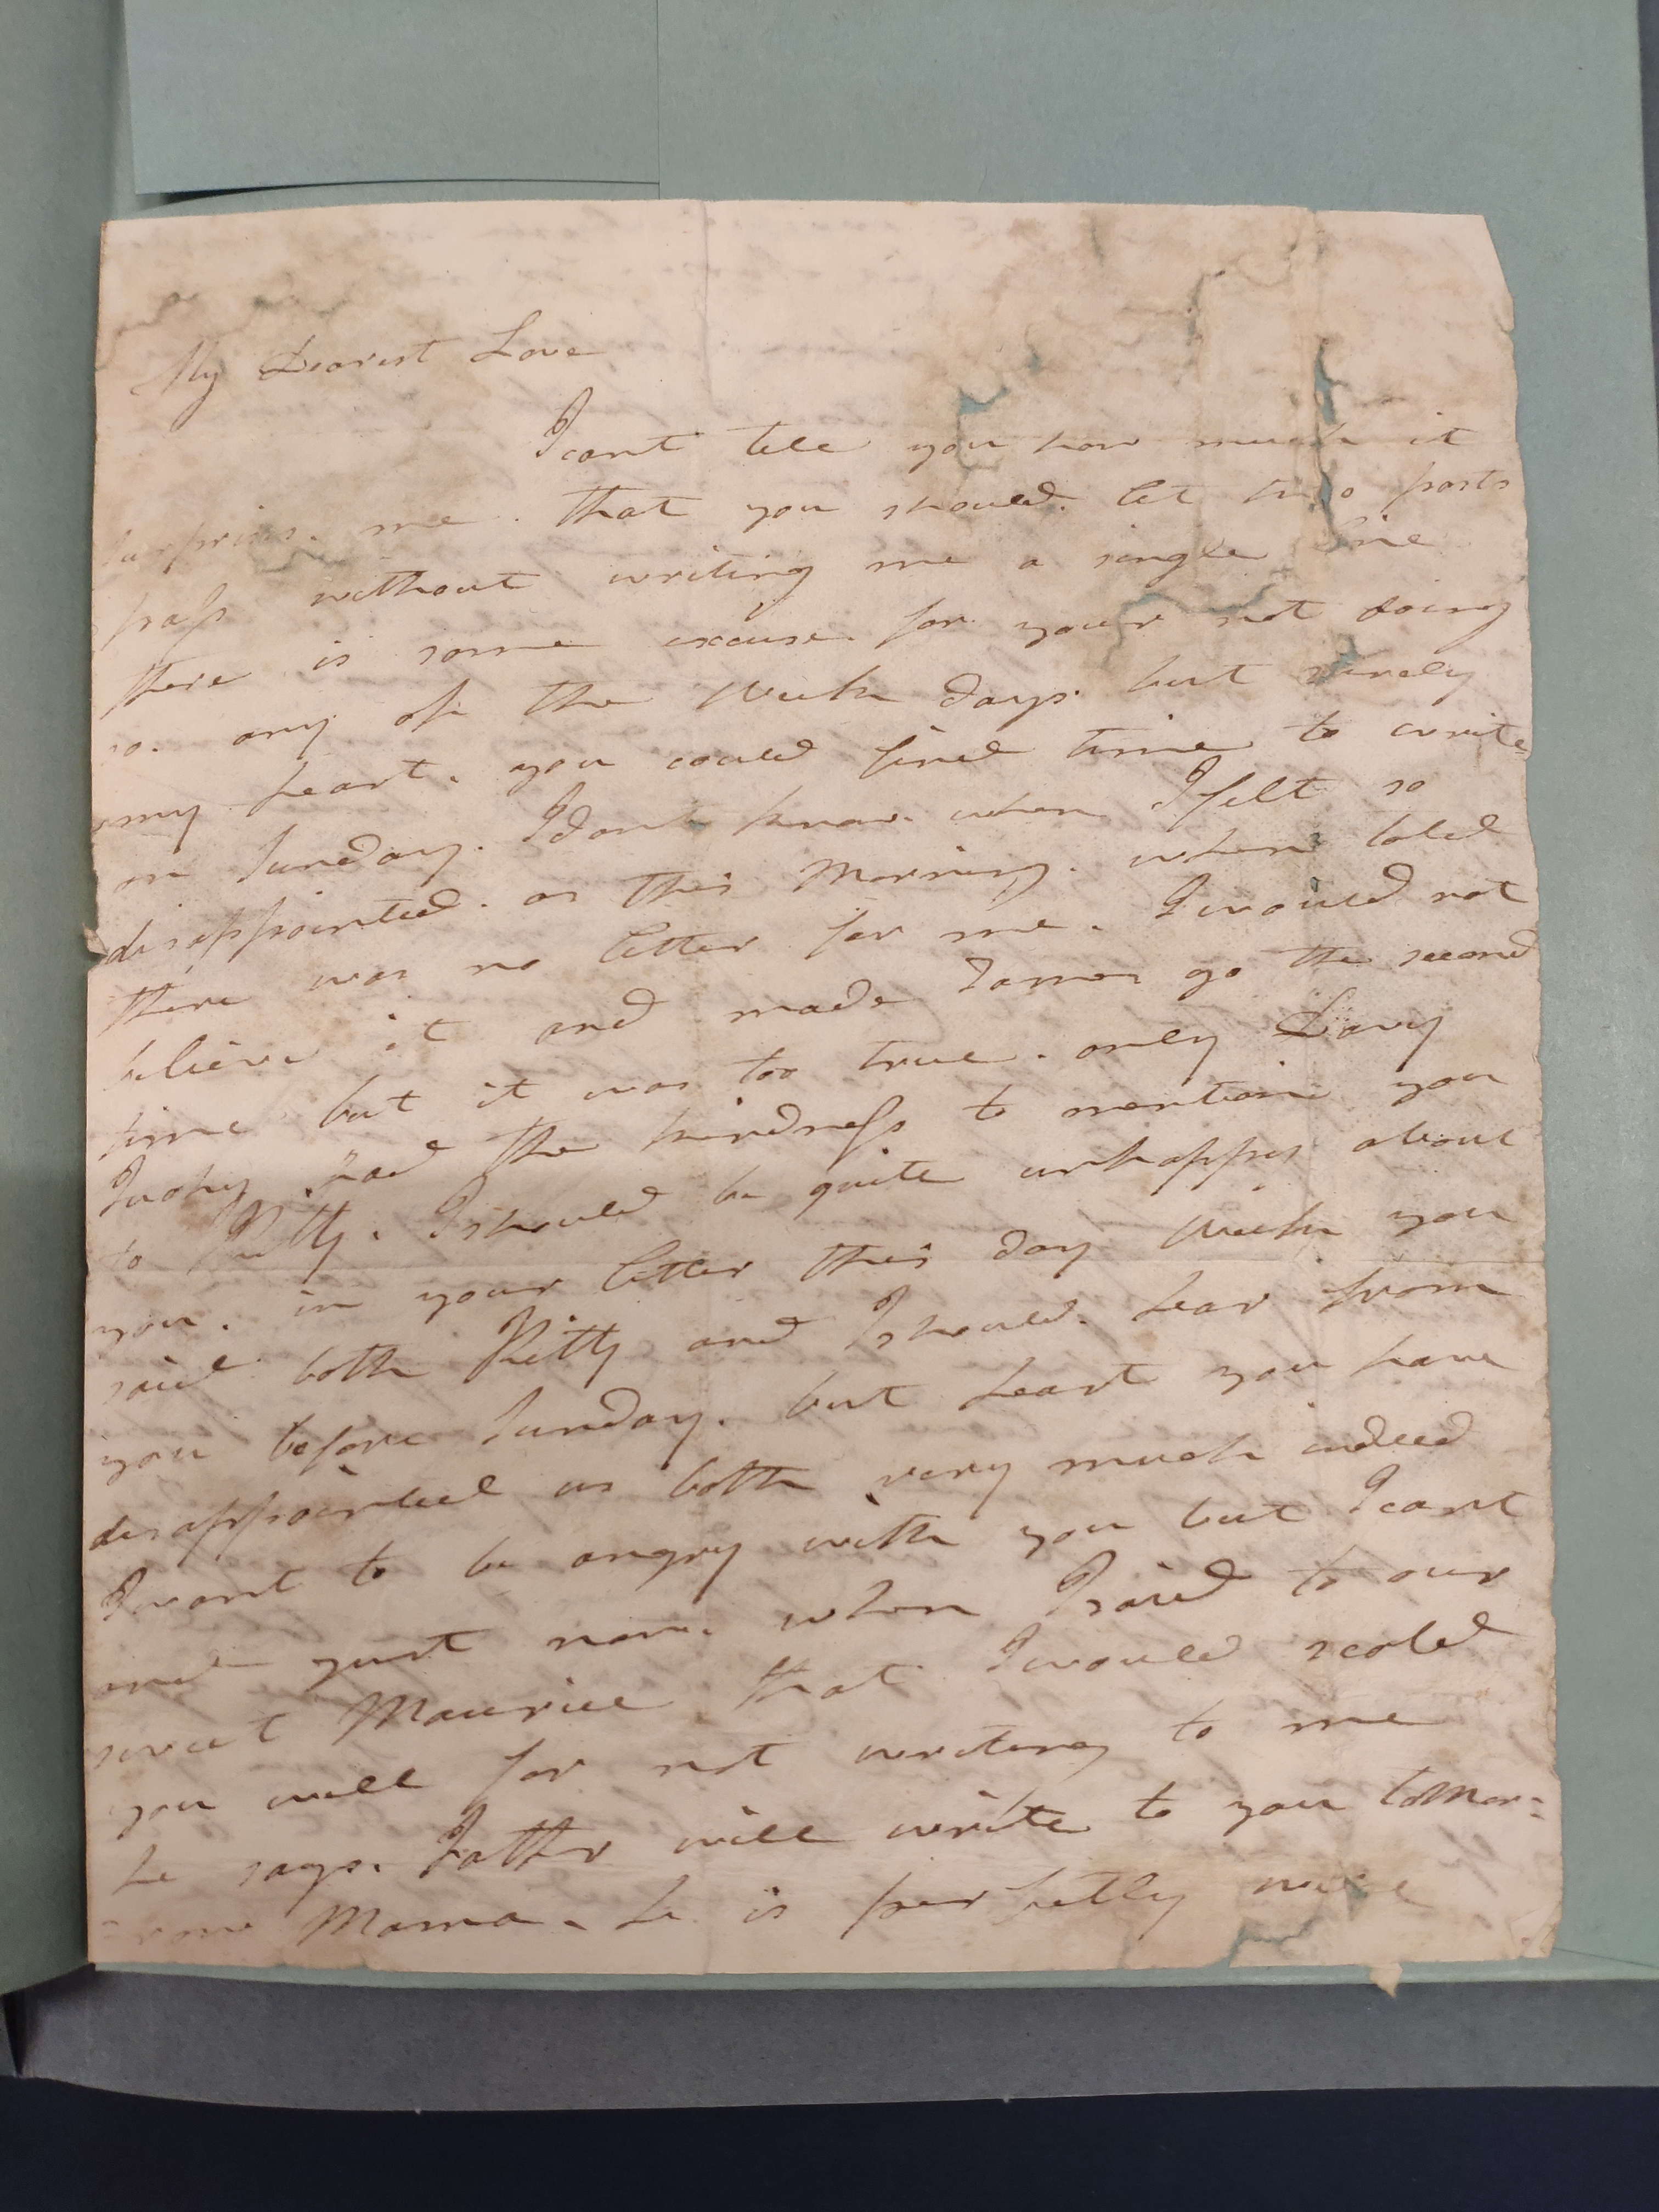 My Dearest Love
I cant tell you how much it
surprises me. that you should. let two posts
pass without writing me a single line
there is some excuse. for your not doing
so. any of the Week days. but surely
my heart. you could find time to write
on Sunday. I dont know. when I felt so
disappointed. as this Morning. when told
there was no letter for me. I would not
believe it and made James go the second
time but it was too true. only Davy
had the kindness to mention you
to Kitty. I should be quite unhappy about
you. in your letter this day Week you
said both Kitty and I should. hear from
you before Sunday. but heart you have
disappointed us both very much indeed
I want to be angry with you but I cant
and just now. when I said to our
sweet Maurice that I would scold
you well for not writing to me
he says. Father will write to you tomor=
=row Mama. he is perfectly well